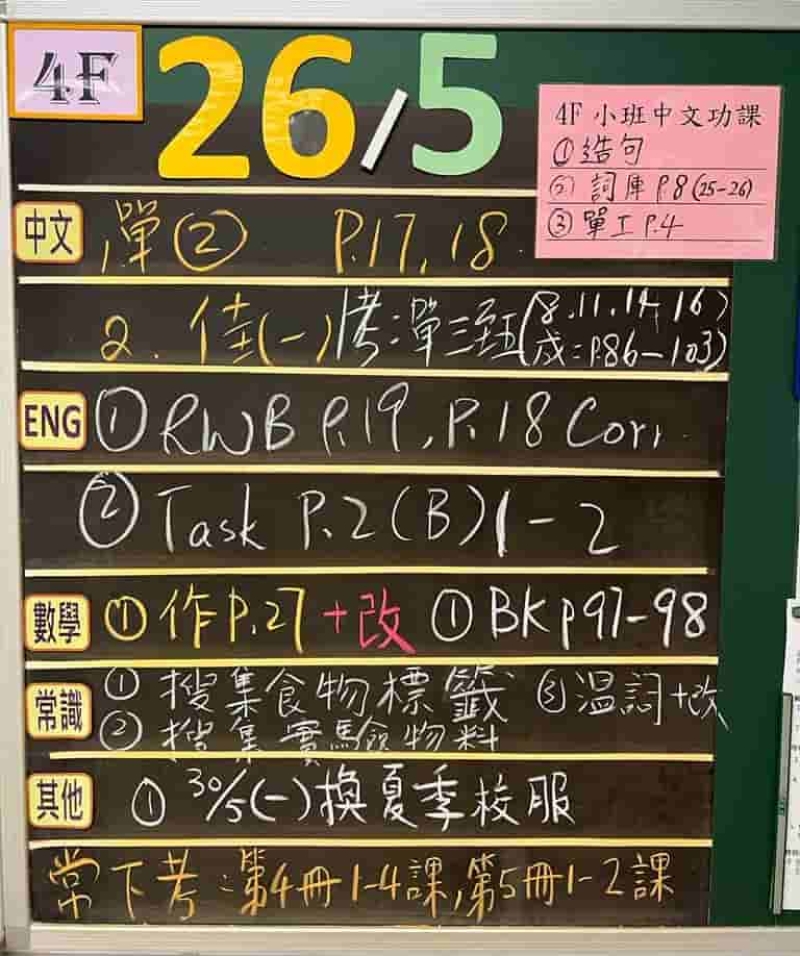 4F
26/5
4F 小班中文功課
① 造句
② 詞庫 P.8 (25-26)
③ 單工 P.4
中文 單② P.17, 18
2. 佳(一)考:單三至五(8.11.14.16)
成:P.86-103)
ENG ① RWB P.19, P.18 Corr.
② Task P.2 (B) 1-2
數學 ① 作P.27 +改 ① BK p97-98
常識 ① 搜集食物標籤 ③ 温詞+改
② 搜集實驗物料
其他 ① 30/5(一)換夏季校服
常下考:第4冊1-4課,第5冊1-2課